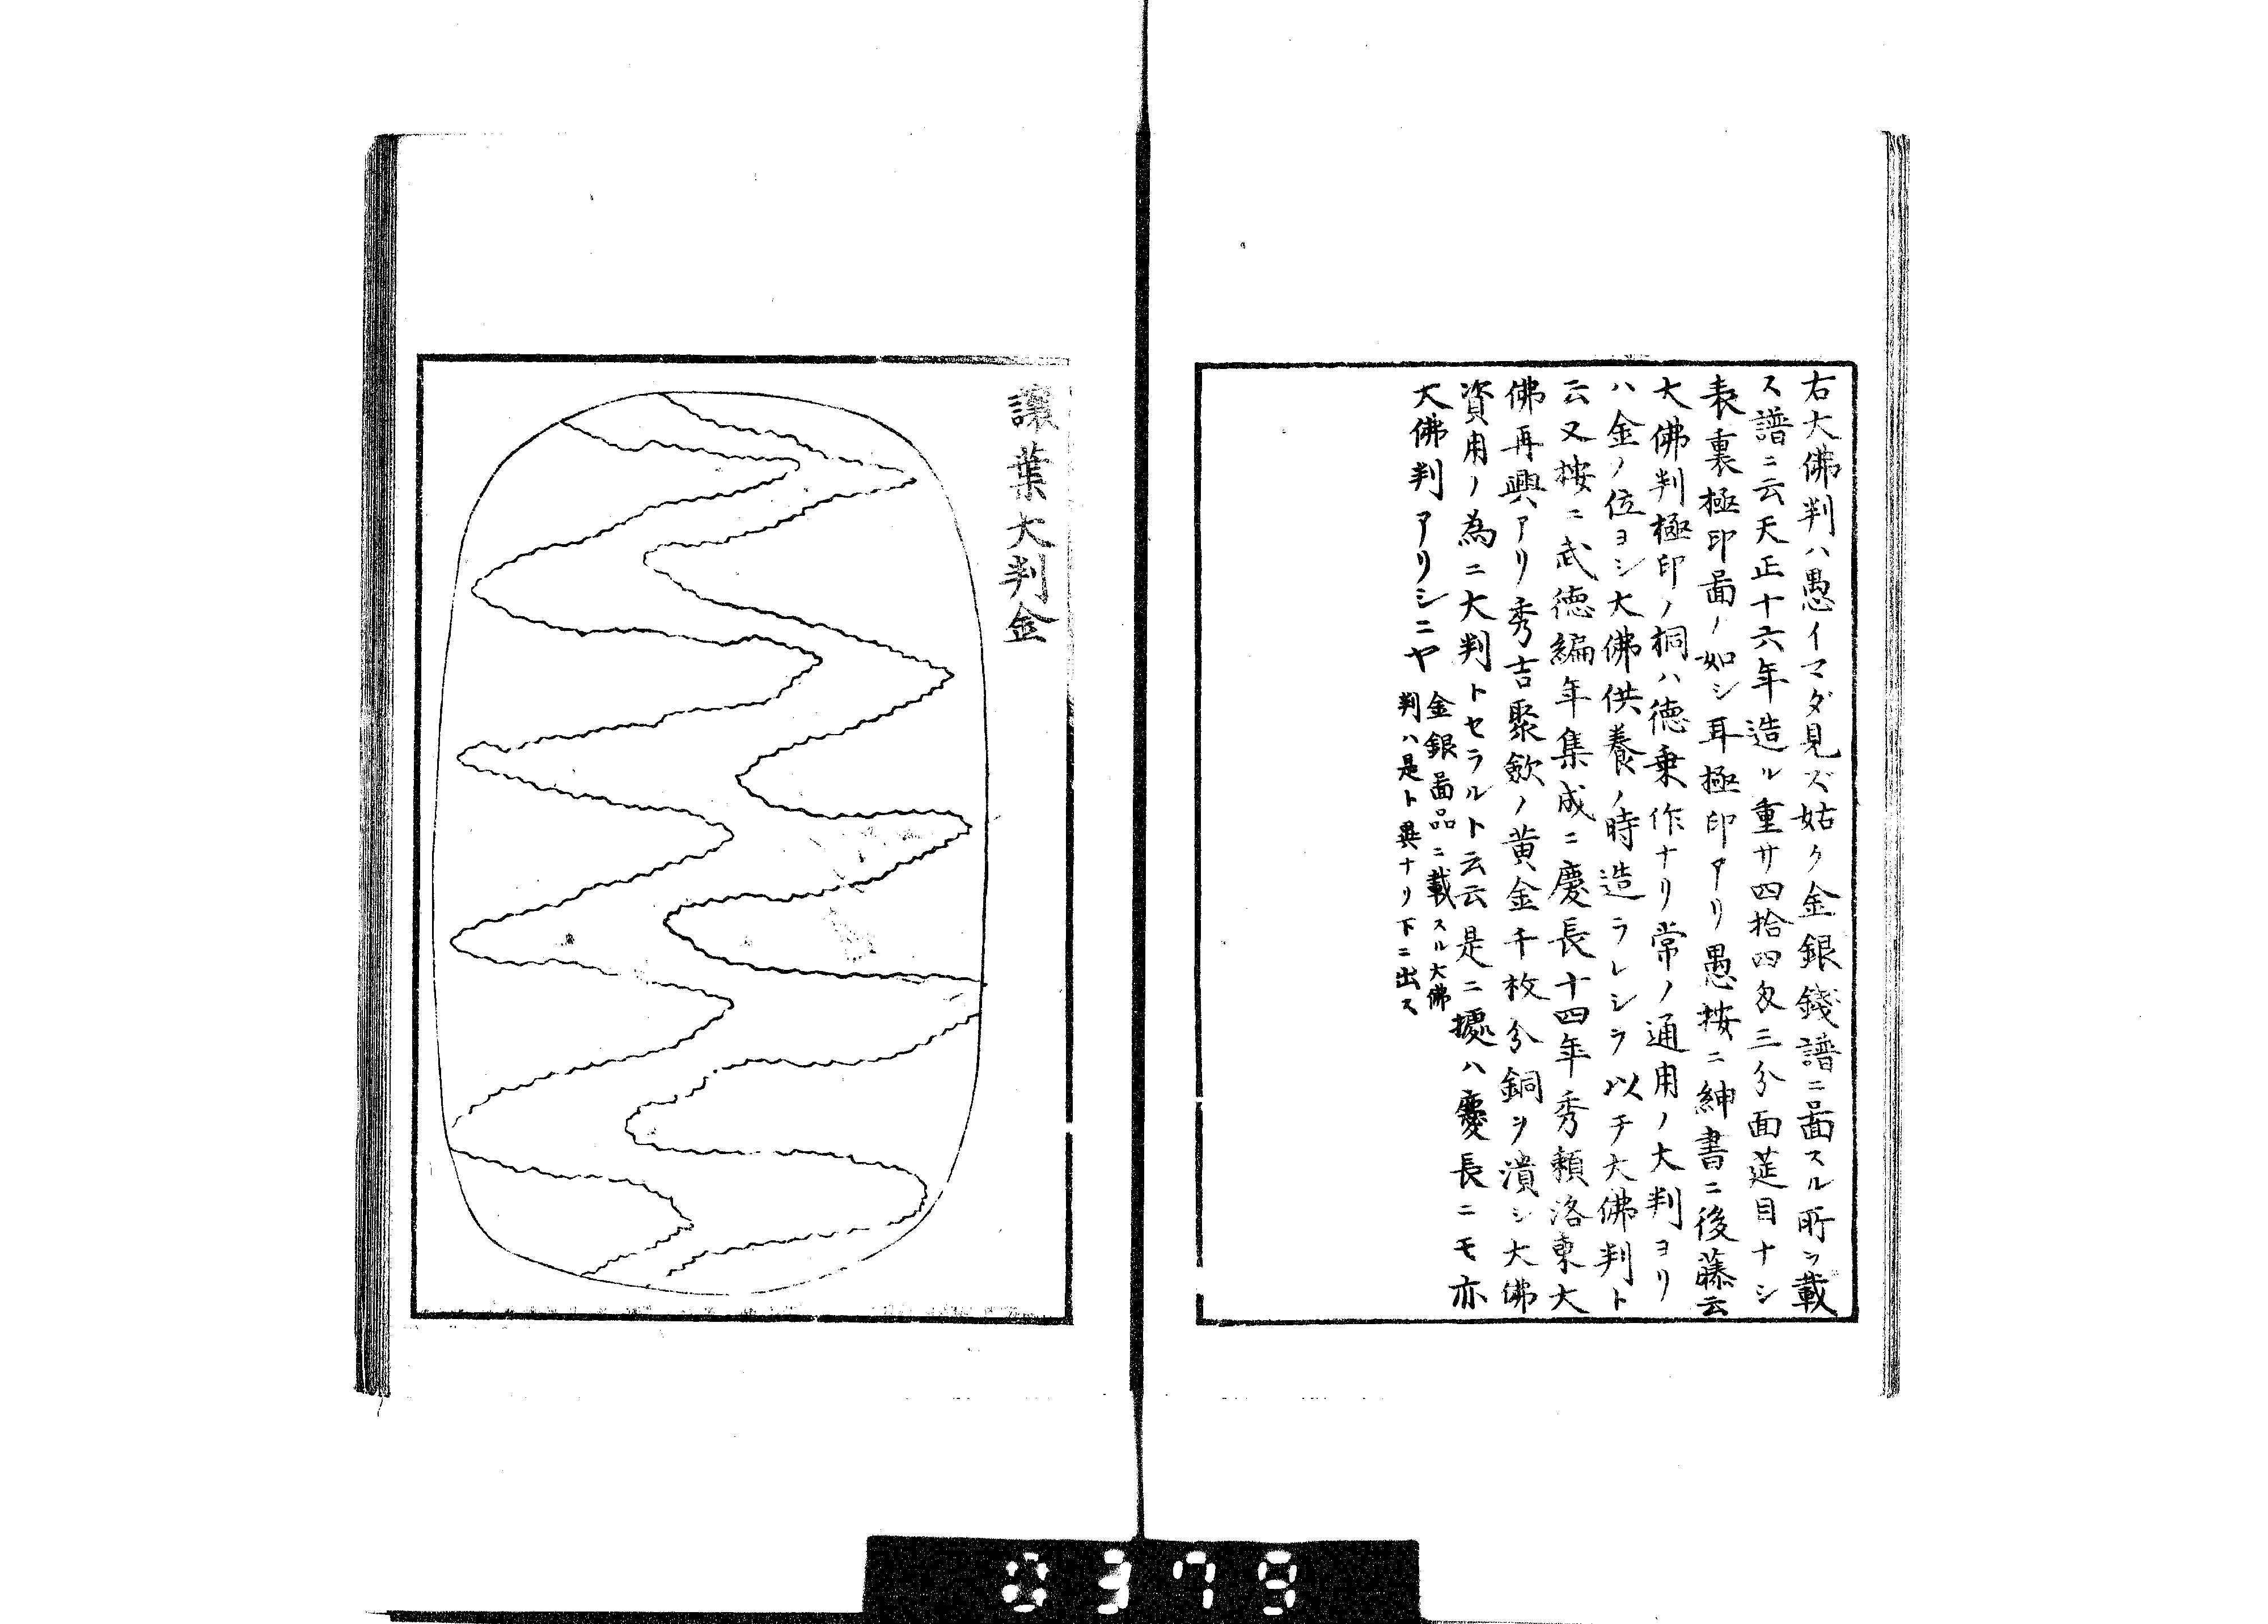 右大佛判ハ愚イマダ見ズ姑ク金銀錢譜ニ啚スル所ヲ載
ス譜ニ云天正十六年造ル重サ四拾四匁三分面莚目ナシ
表裏極印啚ノ如シ耳極印アリ愚按ニ紳書ニ後藤云
大佛判極印ノ桐ハ徳乗作ナリ常ノ通用ノ大判ヨリ
ハ金ノ位ヨシ大佛供養ノ時造ラレシヲ以テ大佛判ト
云又按ニ武徳編年集成ニ慶長十四年秀頼洛東大
佛再興アリ秀吉聚歛ノ黄金千枚分銅ヲ潰シ大佛
資用ノ為ニ大判トセラルト云云是ニ據ハ慶長ニモ亦
大佛判アリシニヤ
金銀啚品ニ載スル大佛
判ハ是ト異ナリ下ニ出ス
讓葉大判金
0379